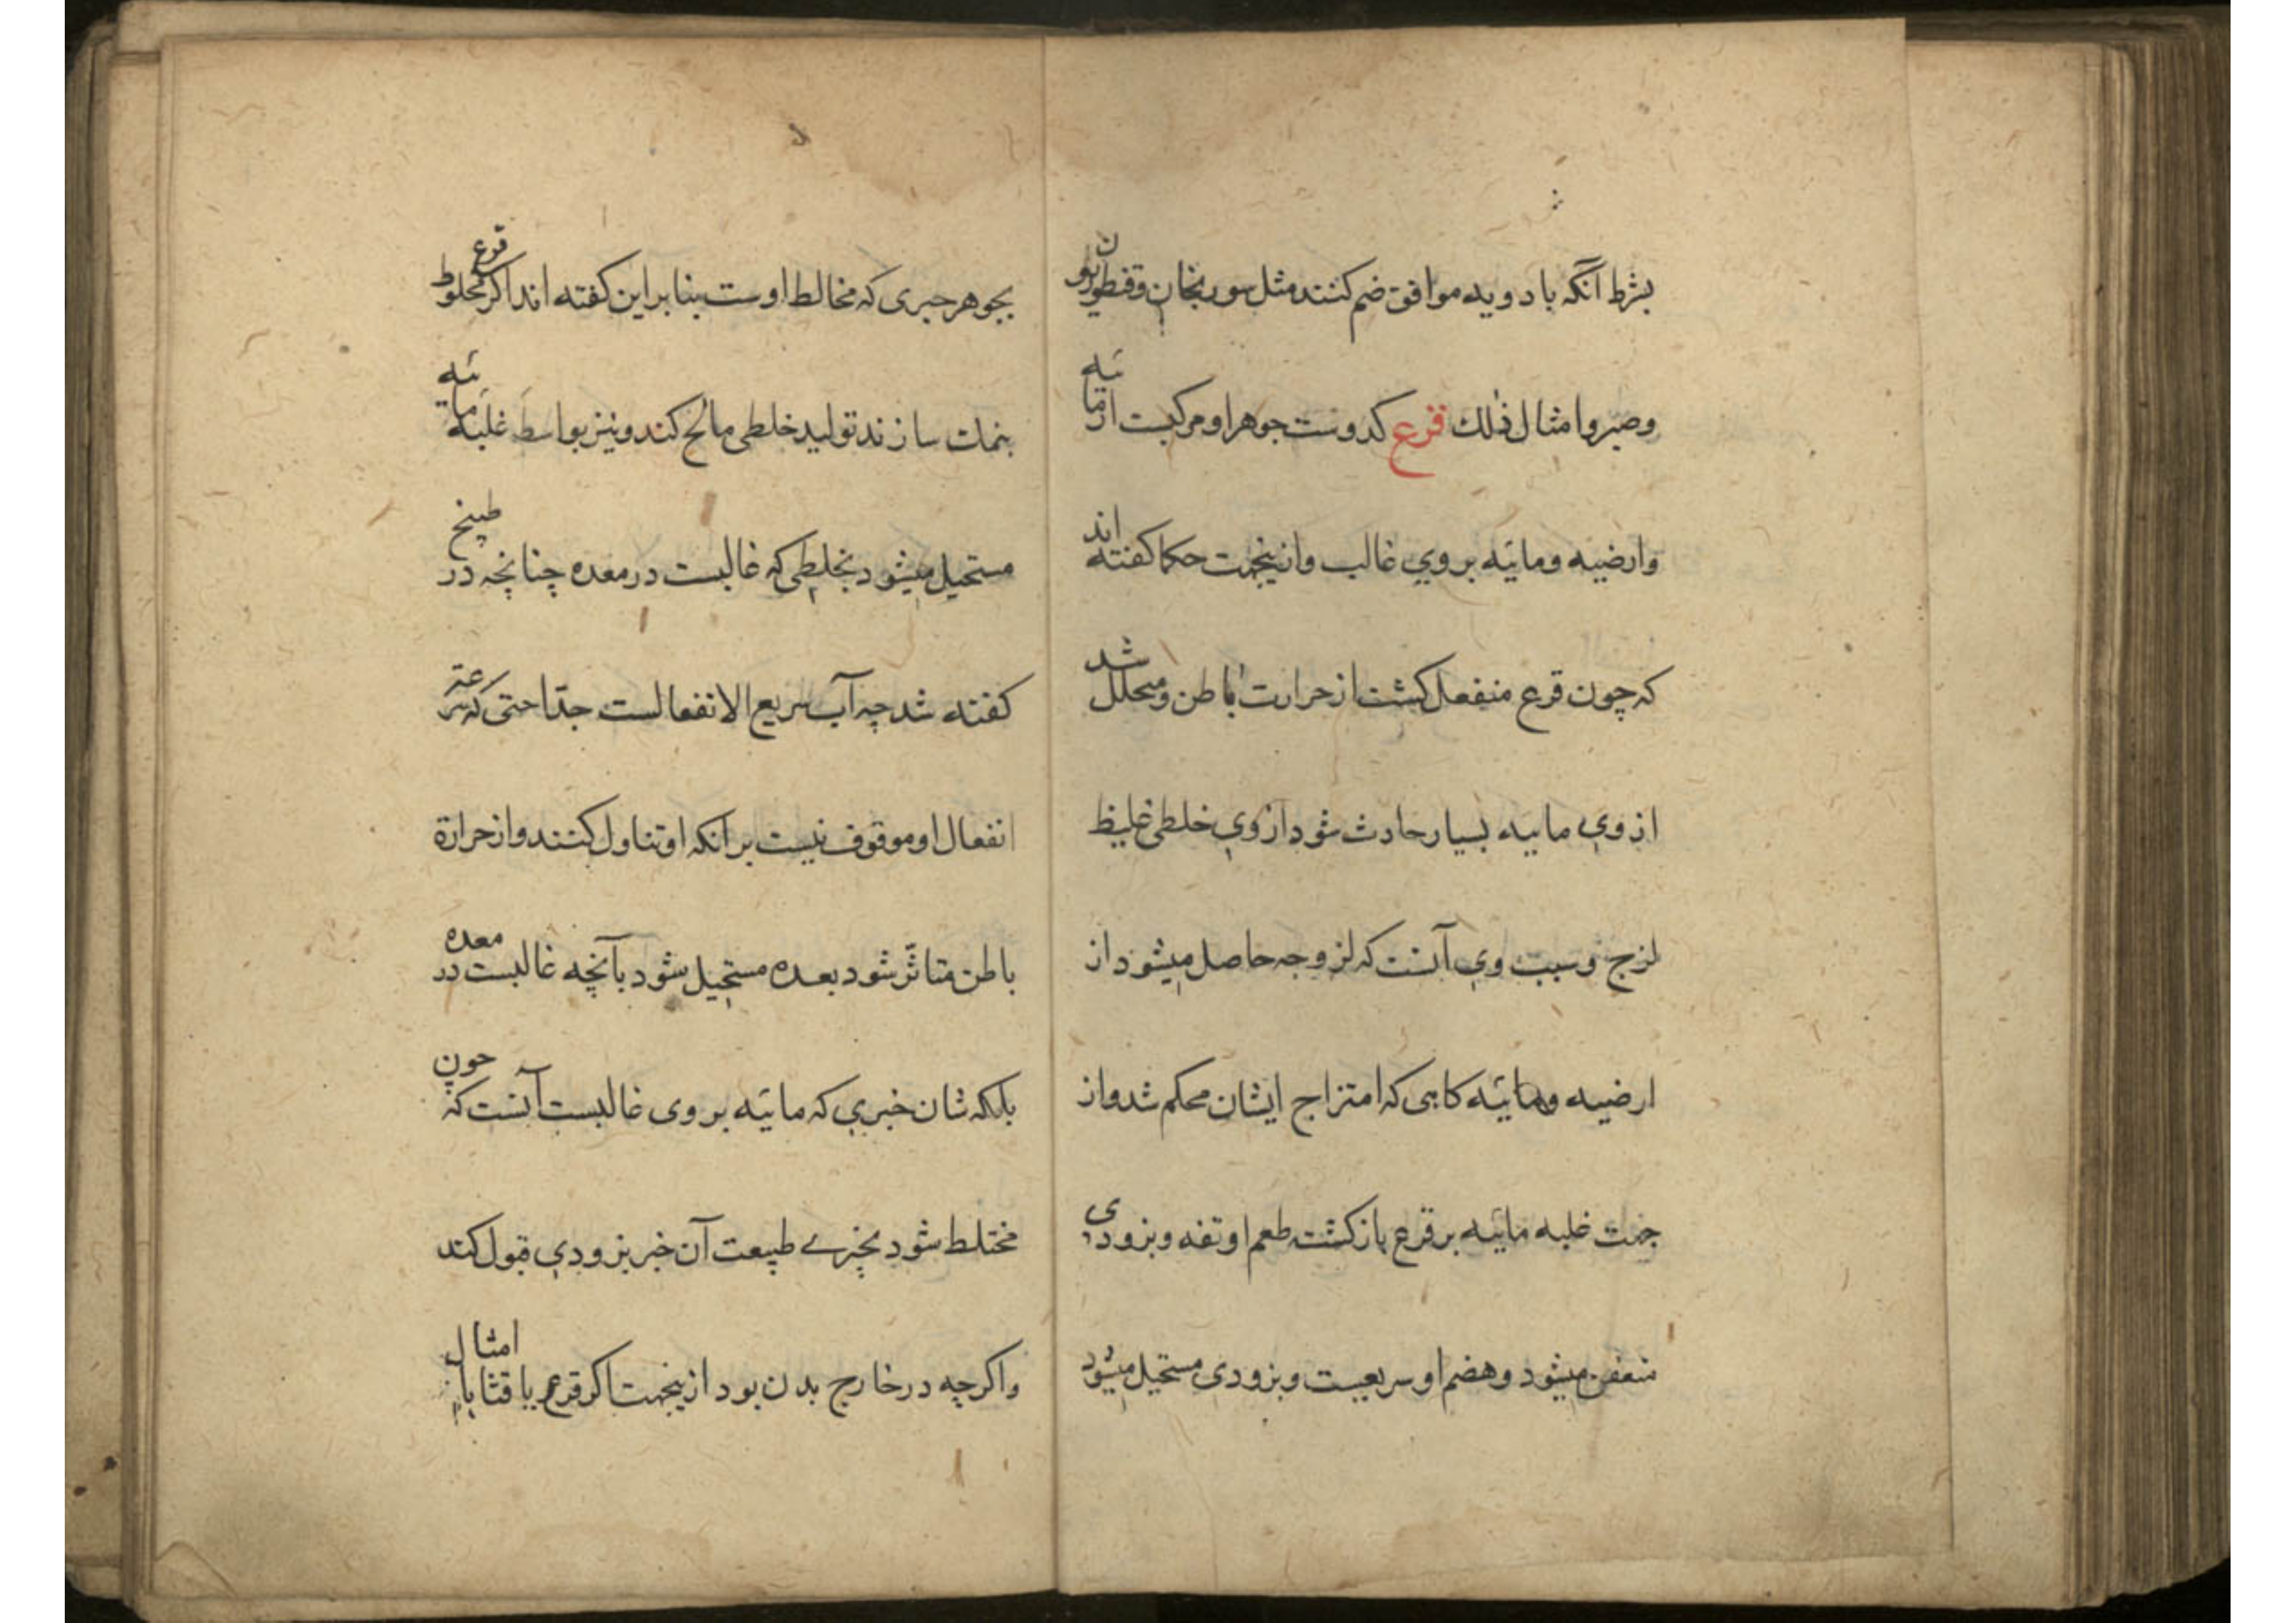 بشرط آنکه بادویه موافق ضم کنند مثل سورنجان و قنطوریون
وصبر وامثال ذلک قرع کدوست جوهر او مرکبست از مائیه
وارضیه ومائیه بروی غالب وازینجهت حکما کفته اند
که چون قرع منفعل کشت از حرارت باطن ومتحلل شد
از وی مائیه بسیار حادث شود از وی خلطی غلیظ
لزج وسبب وی آنست که لزوجه حاصل میشود از
ارضیه ومائیه کاهی که امتزاج ایشان محکم شد واز
جهت غلبه مائیه بر قرع بازکشته طعم او تفه وبزودی
متعفن میشود وهضم او سریعست وبزودی مستحیل میشود
بجوهر چیزی که مخالط اوست بنابراین کفته اند اکر قرع مخلوط
بنمک سازند تولید خلطی مالح کند ونیز بواسطه غلبه مائیه
مستحیل میشود بخلطی که غالبست در معده چنانچه در طبیخ
کفته شد چه آب سریع الانفعالست جدّا حتی که سرعة
انفعال او موقوف نیست بر آنکه او تناول کنند واز حرارة
باطن متاثّر شود بعده مستحیل شود بآنچه غالبست در معده
بلکه شان چیزی که مائیه بروی غالبست آنست که چون
مختلط شود بچیزے طبیعت آن چیز بزودی قبول کند
واکرچه در خارج بدن بود ازینجهت اکر قرع یا قثا یا امثال